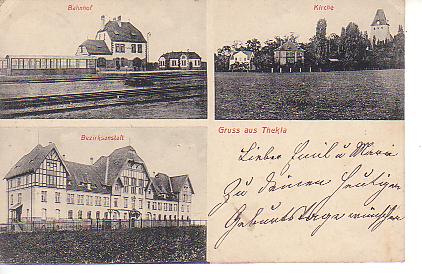 Bahnhof
Kirche
Bezirksanstalt
Gruss aus Thekla
Lieber Emil u Marie
Zu deinem heutigen
Geburtstage wünschen